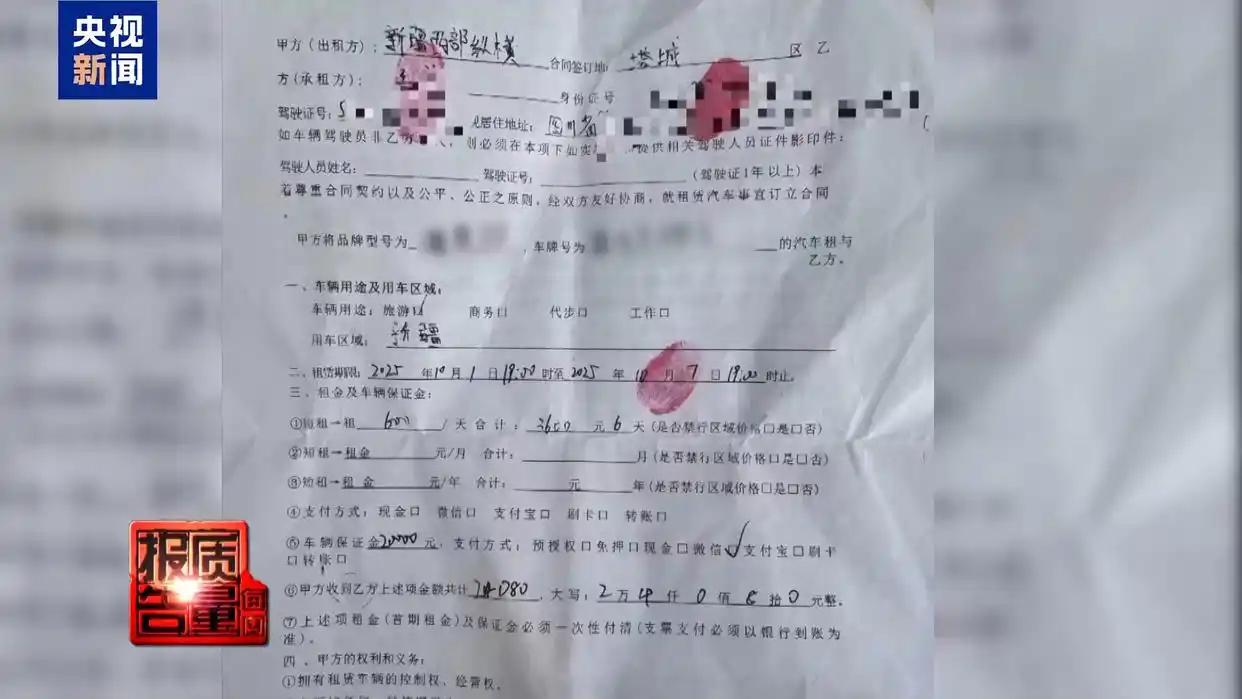 央视
新闻
甲方（出租方）：新疆西部纵横 合同签订地：塔城 区 乙
方（承租方）： 身份证号
驾驶证号：5 现居住地址：四川省
如车辆驾驶员非乙方 人，则必须在本项下如实 提供相关驾驶人员证件影印件：
驾驶人员姓名： 驾驶证号： （驾驶证1年以上）本
着尊重合同契约以及公平、公正之原则，经双方友好协商，就租赁汽车事宜订立合同
。
甲方将品牌型号为 ，车牌号为 的汽车租与
乙方。
一、车辆用途及用车区域：
车辆用途：旅游口✓ 商务口 代步口 工作口
用车区域： 新疆
二、租赁期限：2025 年10月1日19:00时至2025 年10月7日19:00时止。
三、租金及车辆保证金：
①短租→租 600 /天合计：3600 元6天(是否禁行区域价格口是口否)
②短租→租金 元/月 合计： 月(是否禁行区域价格口是口否)
③短租→租金 元/年 合计： 元 年(是否禁行区域价格口是口否)
④支付方式：现金口 微信口 支付宝口 刷卡口 转账口
⑤车辆保证金20000元，支付方式：预授权口免押口现金口微信✓支付宝口刷卡
口转账口
⑥甲方收到乙方上述项金额共计24080，大写：2万4仟0佰8拾0元整。
⑦上述项租金(首期租金)及保证金必须一次性付清(支票支付必须以银行到账为
准)。
四、甲方的权利和义务：
①拥有租赁车辆的控制权、经营权。
质量
报告
每周